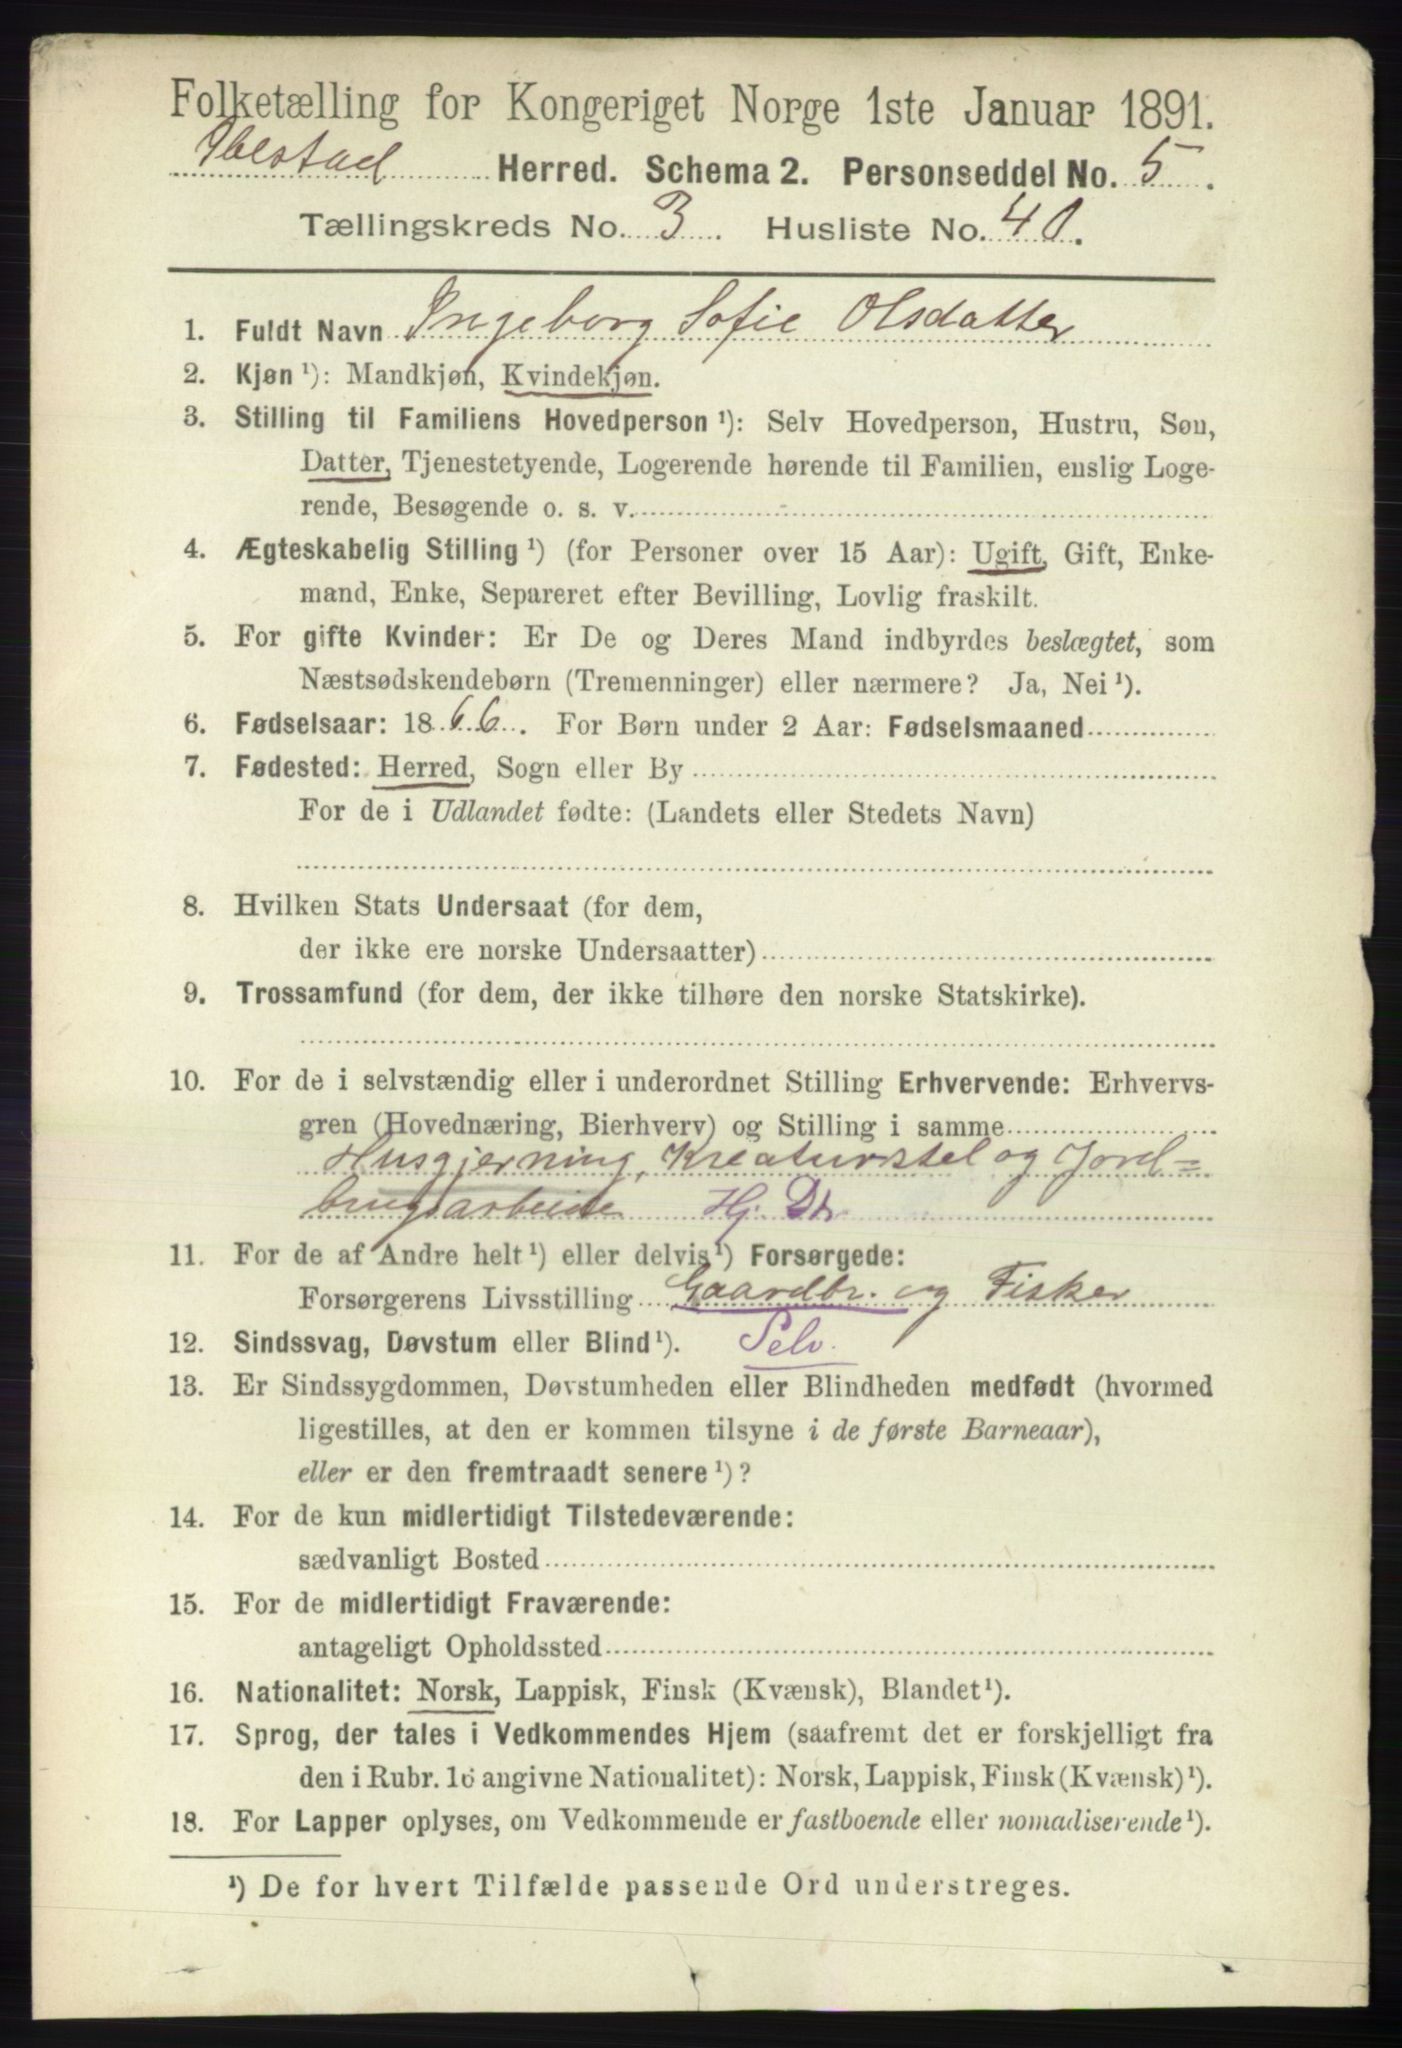 Folketælling for Kongeriget Norge 1ste Januar 1891.
Ibestad Herred. Schema 2. Personseddel No. 5.
Tællingskreds No. 3. Husliste No. 40.
1. Fuldt Navn Ingeborg Sofie Olsdatter
2. Kjøn ¹): Mandkjøn, Kvindekjøn.
3. Stilling til Familiens Hovedperson ¹): Selv Hovedperson, Hustru, Søn,
Datter, Tjenestetyende, Logerende hørende til Familien, enslig Loge-
rende, Besøgende o. s. v.
4. Ægteskabelig Stilling ¹) (for Personer over 15 Aar): Ugift, Gift, Enke-
mand, Enke, Separeret efter Bevilling, Lovlig fraskilt.
5. For gifte Kvinder: Er De og Deres Mand indbyrdes beslægtet, som
Næstsødskendebørn (Tremenninger) eller nærmere? Ja, Nei ¹).
6. Fødselsaar: 1866. For Børn under 2 Aar: Fødselsmaaned
7. Fødested: Herred, Sogn eller By
For de i Udlandet fødte: (Landets eller Stedets Navn)
8. Hvilken Stats Undersaat (for dem,
der ikke ere norske Undersaatter)
9. Trossamfund (for dem, der ikke tilhøre den norske Statskirke).
10. For de i selvstændig eller i underordnet Stilling Erhvervende: Erhvervs-
gren (Hovednæring, Bierhverv) og Stilling i samme
Husgjerning, Kreaturstel og Jord-
brugsarbeide Hj. Dtr
11. For de af Andre helt ¹) eller delvis ¹) Forsørgede:
Forsørgerens Livsstilling Gaardbr. og Fisker
12. Sindssvag, Døvstum eller Blind ¹). Selv.
13. Er Sindssygdommen, Døvstumheden eller Blindheden medfødt (hvormed
ligestilles, at den er kommen tilsyne i de første Barneaar),
eller er den fremtraadt senere ¹)?
14. For de kun midlertidigt Tilstedeværende:
sædvanligt Bosted
15. For de midlertidigt Fraværende:
antageligt Opholdssted
16. Nationalitet: Norsk, Lappisk, Finsk (Kvænsk), Blandet ¹).
17. Sprog, der tales i Vedkommendes Hjem (saafremt det er forskjelligt fra
den i Rubr. 16 angivne Nationalitet): Norsk, Lappisk, Finsk (Kvænsk) ¹).
18. For Lapper oplyses, om Vedkommende er fastboende eller nomadiserende ¹).
¹) De for hvert Tilfælde passende Ord understreges.